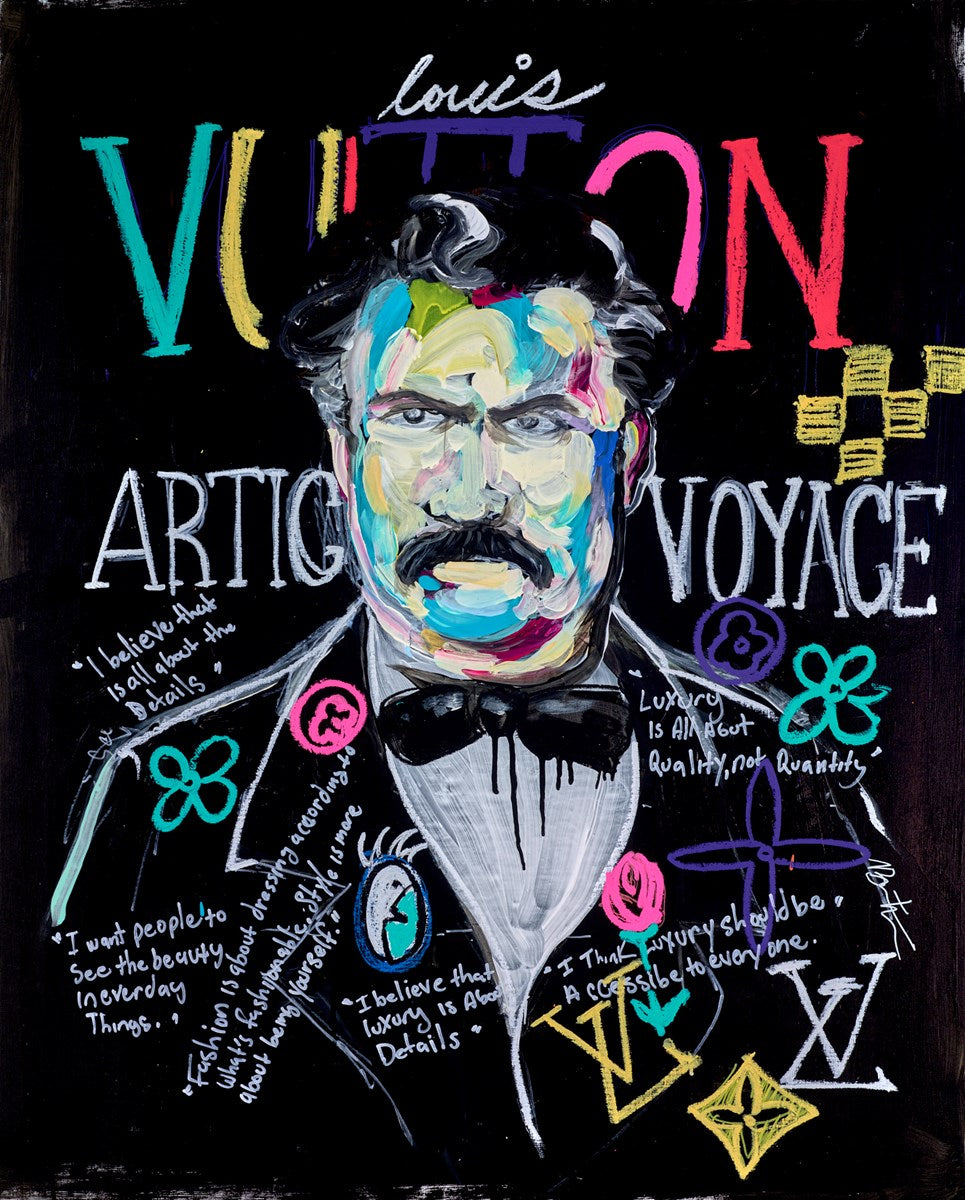 louis
VUITTON
ARTIG VOYAGE
"I believe that
Is all about the
Details"
"Luxury
Is All About
Quality, not Quantity"
"I want people to
See the beauty
in everday
Things."
"Fashion is about dressing according to
what's fashionable. Style is more
about being yourself."
"I believe that
luxury is Abou
Details"
"I Think Luxury should be"
Accessible to everyone.
LV
LV